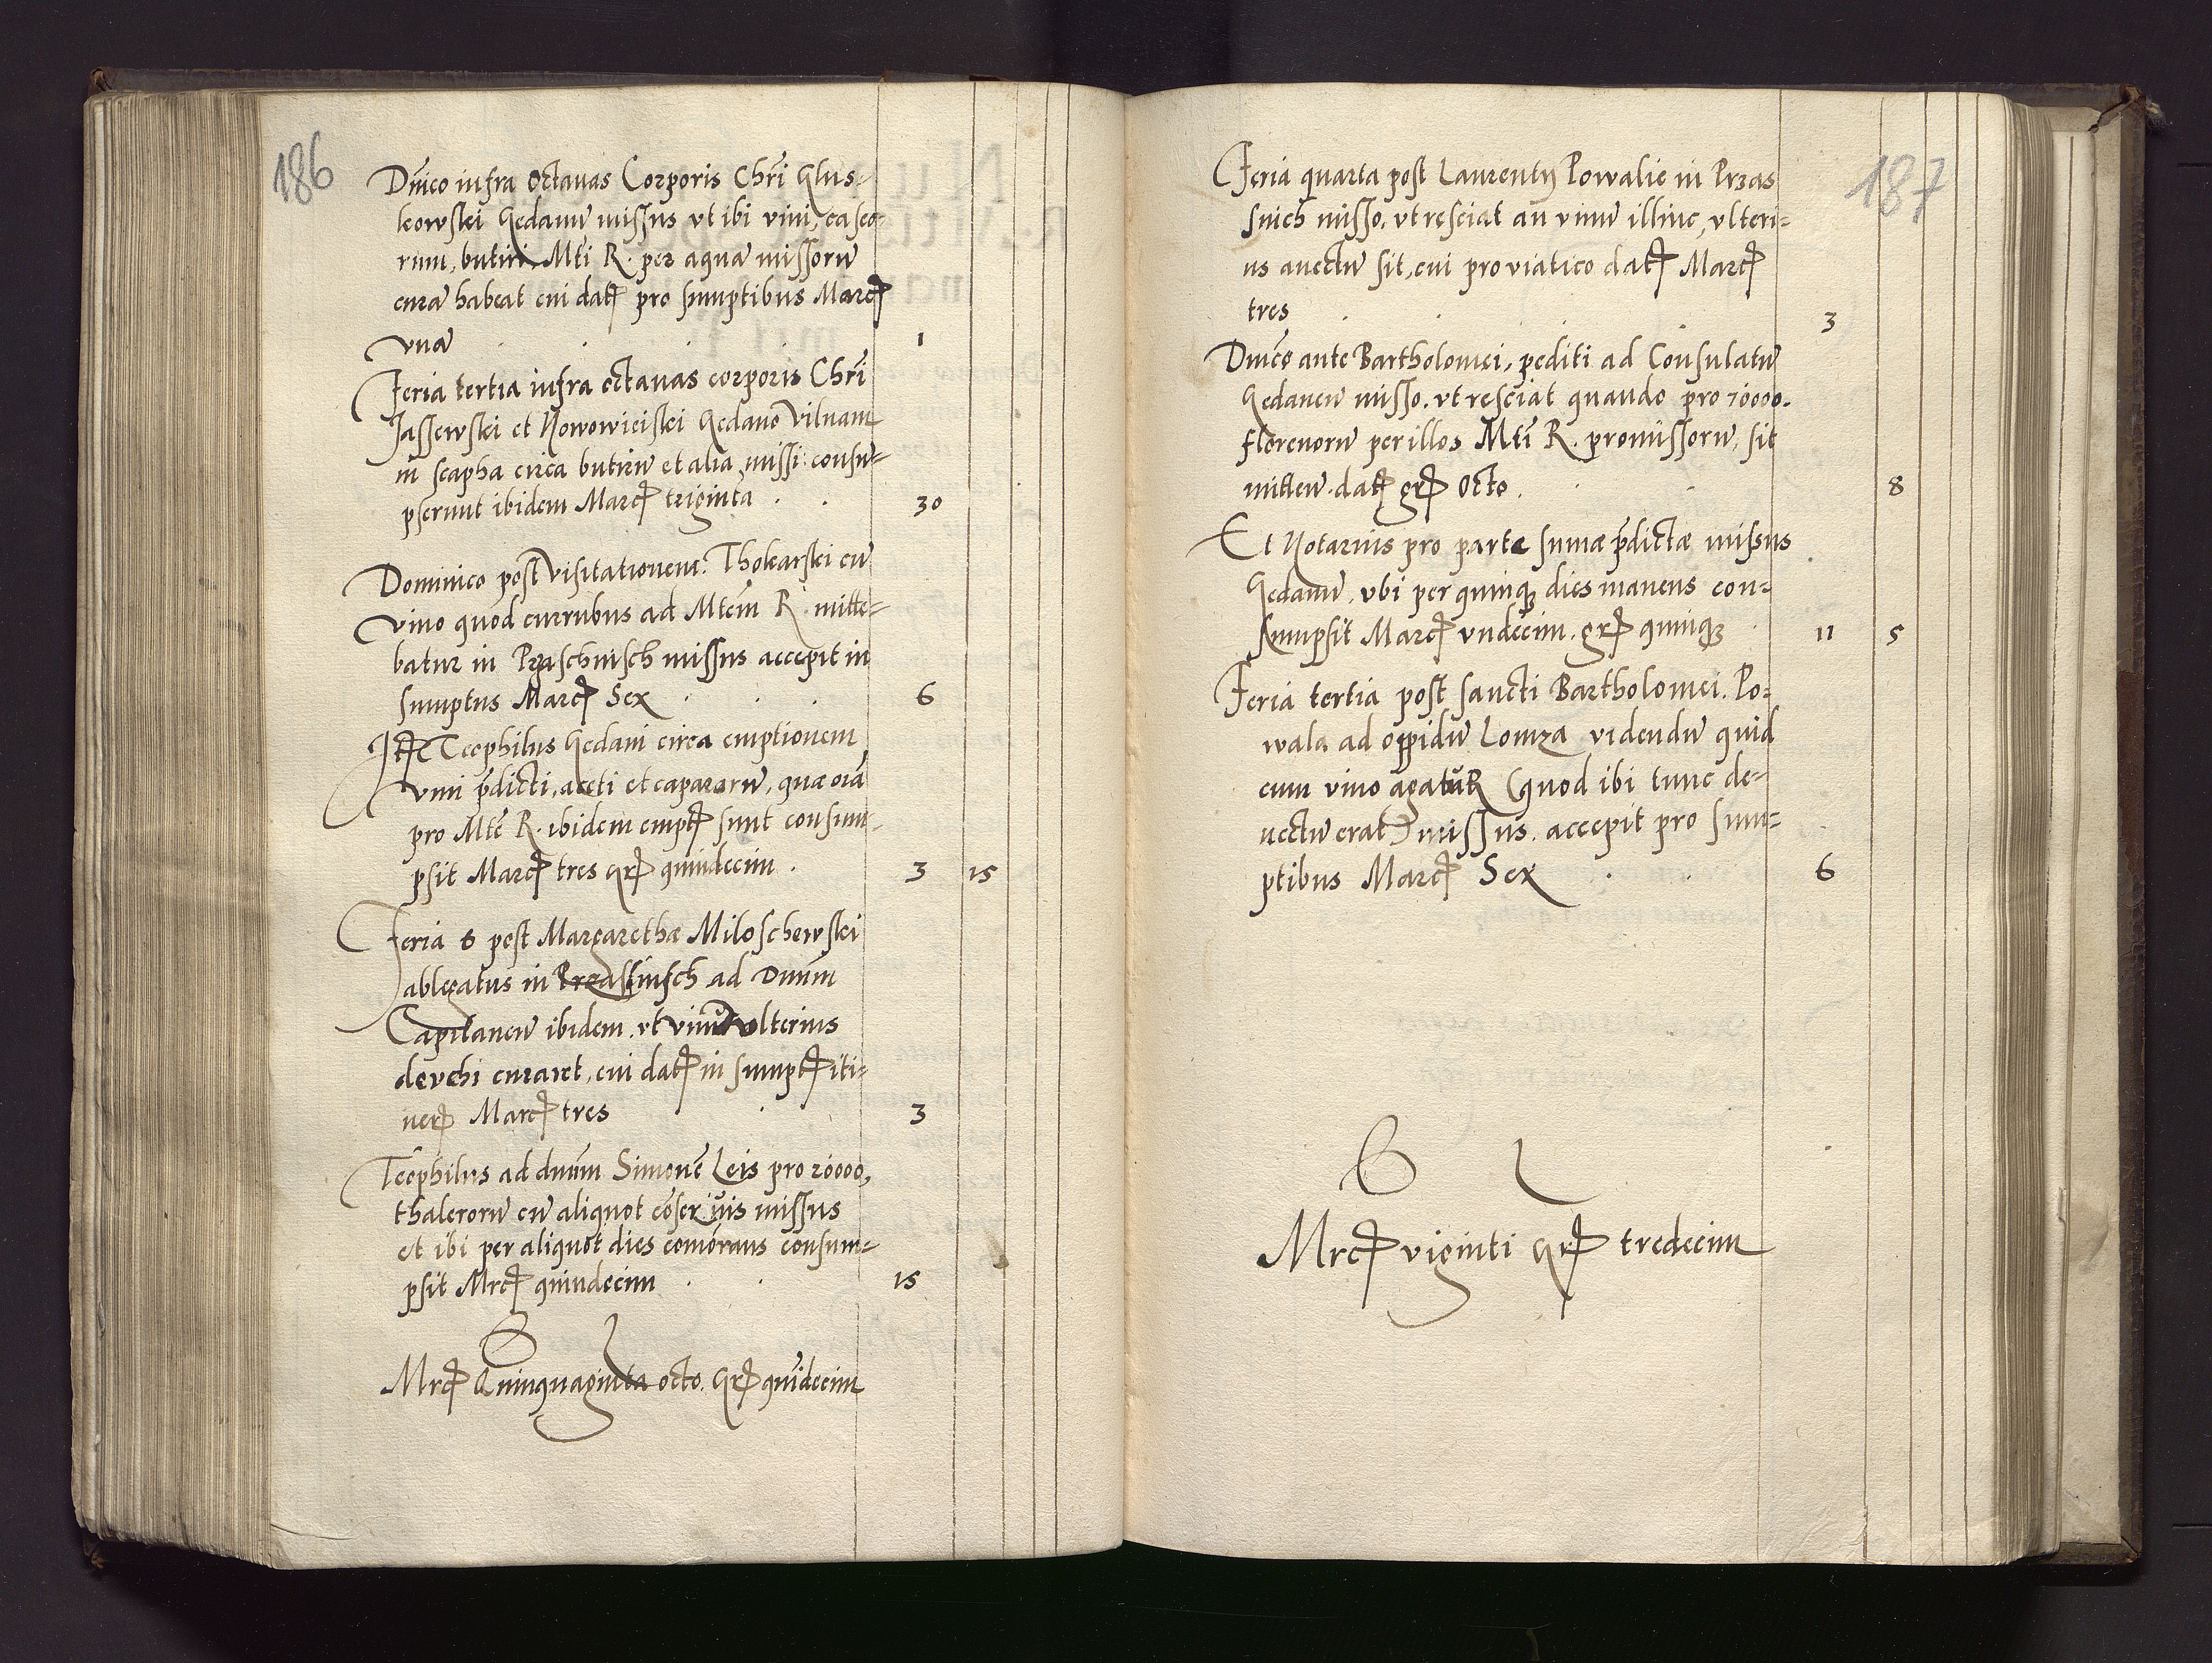 186
Dnico infra octauas Corporis Chri Glus-
kowskei Gedanu missus vt ibi vini, caseo-
rum, butiri, Mti R. per aqua missoru
cura habeat cui dat pro sumptibus Marc
vna 1
Feria tertia infra octauas corporis Chri
Jassewskei et Nowowieiskei Gedano Vilnam
in scapha circa butiru et alia missi: consu-
pserunt ibidem Marc triginta 30
Dominico post visitationem: Tholkarskei cu
vino quod curribus ad Mtem R. mitte-
batur in Przaschnisch missus accepit in
sumptus Marc Sex 6
Teophilus Gedani circa emptionem
vini pdicti, aceti et capararu, quæ oia
pro Mte R. ibidem empt sunt consum-
psit Marc tres gr quindecim 3 15
Feria 6 post Margarethæ Miloschewskei
ablegatus in Przassnisch ad Dnum
Capitaneu ibidem vt vinu vlterius
devehi curaret, cui dat in sumpt iti-
ner Marc tres 3
Teophilus ad dnum Simone Leis pro 20000,
thaleroru cu aliquot coseruis missus
et ibi per aliquot dies comorans consum-
psit Mrc quindecim 15
Mrc Quinquaginta octo. Gr quidecim
187
Feria quarta post Laurentij Powalie in Przas
snich misso, vt resciat an vinu illinc, vlteri-
us auectu sit, cui pro viatico dat Marc
tres 3
Dnico ante Bartholomei, pediti ad Consulatu
Gedaneu misso, vt resciat quando pro 70000.
florenoru per illos Mti R. promissoru, sit
mitten. dat gr Octo 8
Et Notarius pro parte sumæ pdictæ missus
Gedanu, vbi per quinq dies manens con-
sumpsit Marc vndecim. gr quinq 11 5
Feria tertia post sancti Bartholomei. Po-
wala ad oppidu Lomza videndu quid
cum vino agatuR (quod ibi tunc de-
uectu erat) missus. accepit pro sum-
ptibus Marc Sex 6
Mrc viginti Gr tredecim